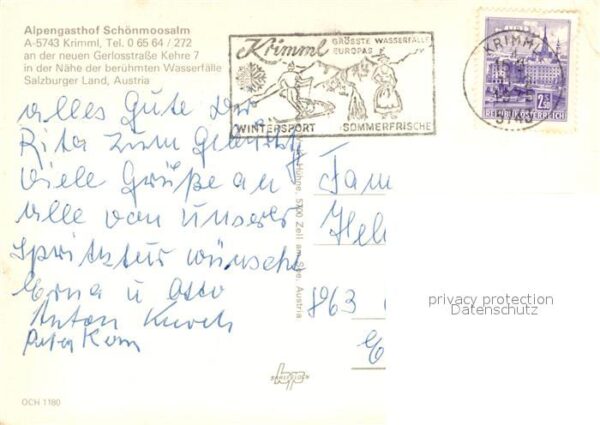 Alpengasthof Schönmoosalm
A-5743 Krimml, Tel. 0 65 64 / 272
an der neuen Gerlosstraße Kehre 7
in der Nähe der berühmten Wasserfälle
Salzburger Land, Austria
Krimml
GRÖSSTE WASSERFÄLLE
EUROPAS
WINTERSPORT SOMMERFRISCHE
KRIMML
5743
2.50
REPUBLIK ÖSTERREICH
alles Gute der
Rita zum Geburtstg
viele Grüße an
alle von unserer
Spritztur wünsche
Erna u Otto
Anton
Peter
5700 Zell am See, Austria
Fam
Hel
8963
privacy protection
Datenschutz
OCH 1180